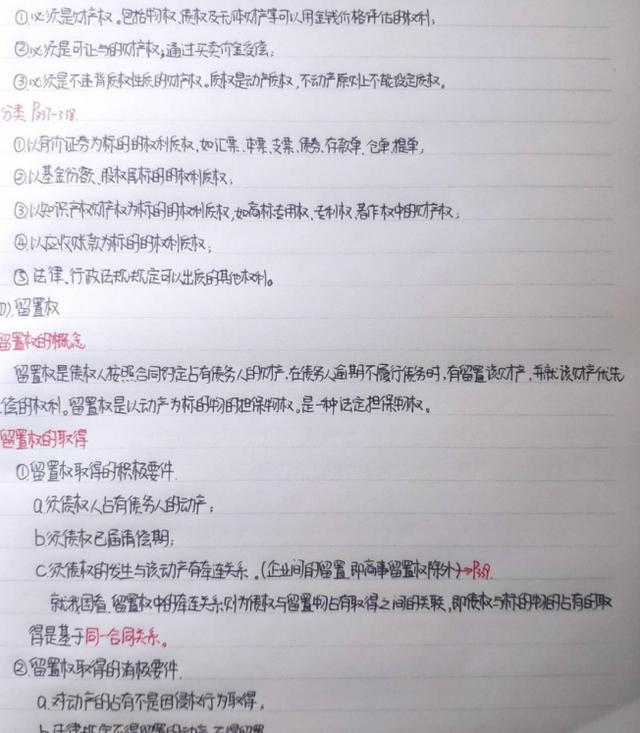 ①必须是财产权。包括物权、债权及无体财产等可以用金钱价格评估的权利;
②必须是可让与的财产权,通过买卖价金受偿;
③必须是不违背质权性质的财产权。质权是动产质权,不动产原则上不能设定质权。
分类 P337-338.
①以有价证券为标的的权利质权,如汇票、本票、支票、债券、存款单、仓单、提单;
②以基金份额、股权为标的的权利质权;
③以知识产权财产权为标的的权利质权,如商标专用权、专利权、著作权中的财产权;
④以应收账款为标的的权利质权;
⑤法律、行政法规规定可以出质的其他权利。
留置权
留置权的概念
留置权是债权人按照合同约定占有债务人的财产,在债务人逾期不履行债务时,有留置该财产,并就该财产优先
偿的权利。留置权是以动产为标的物的担保物权。是一种法定担保物权。
留置权的取得
①留置权取得的积极要件.
a.须债权人占有债务人的动产;
b.须债权已届清偿期;
c.须债权的发生与该动产有牵连关系。(企业间的留置,即商事留置权除外)→P339.
就我国看,留置权中的牵连关系则为债权与留置物占有取得之间的关联,即债权与标的物的占有的取
得是基于同一合同关系。
②留置权取得的消极要件.
a.对动产的占有不是因侵权行为取得,